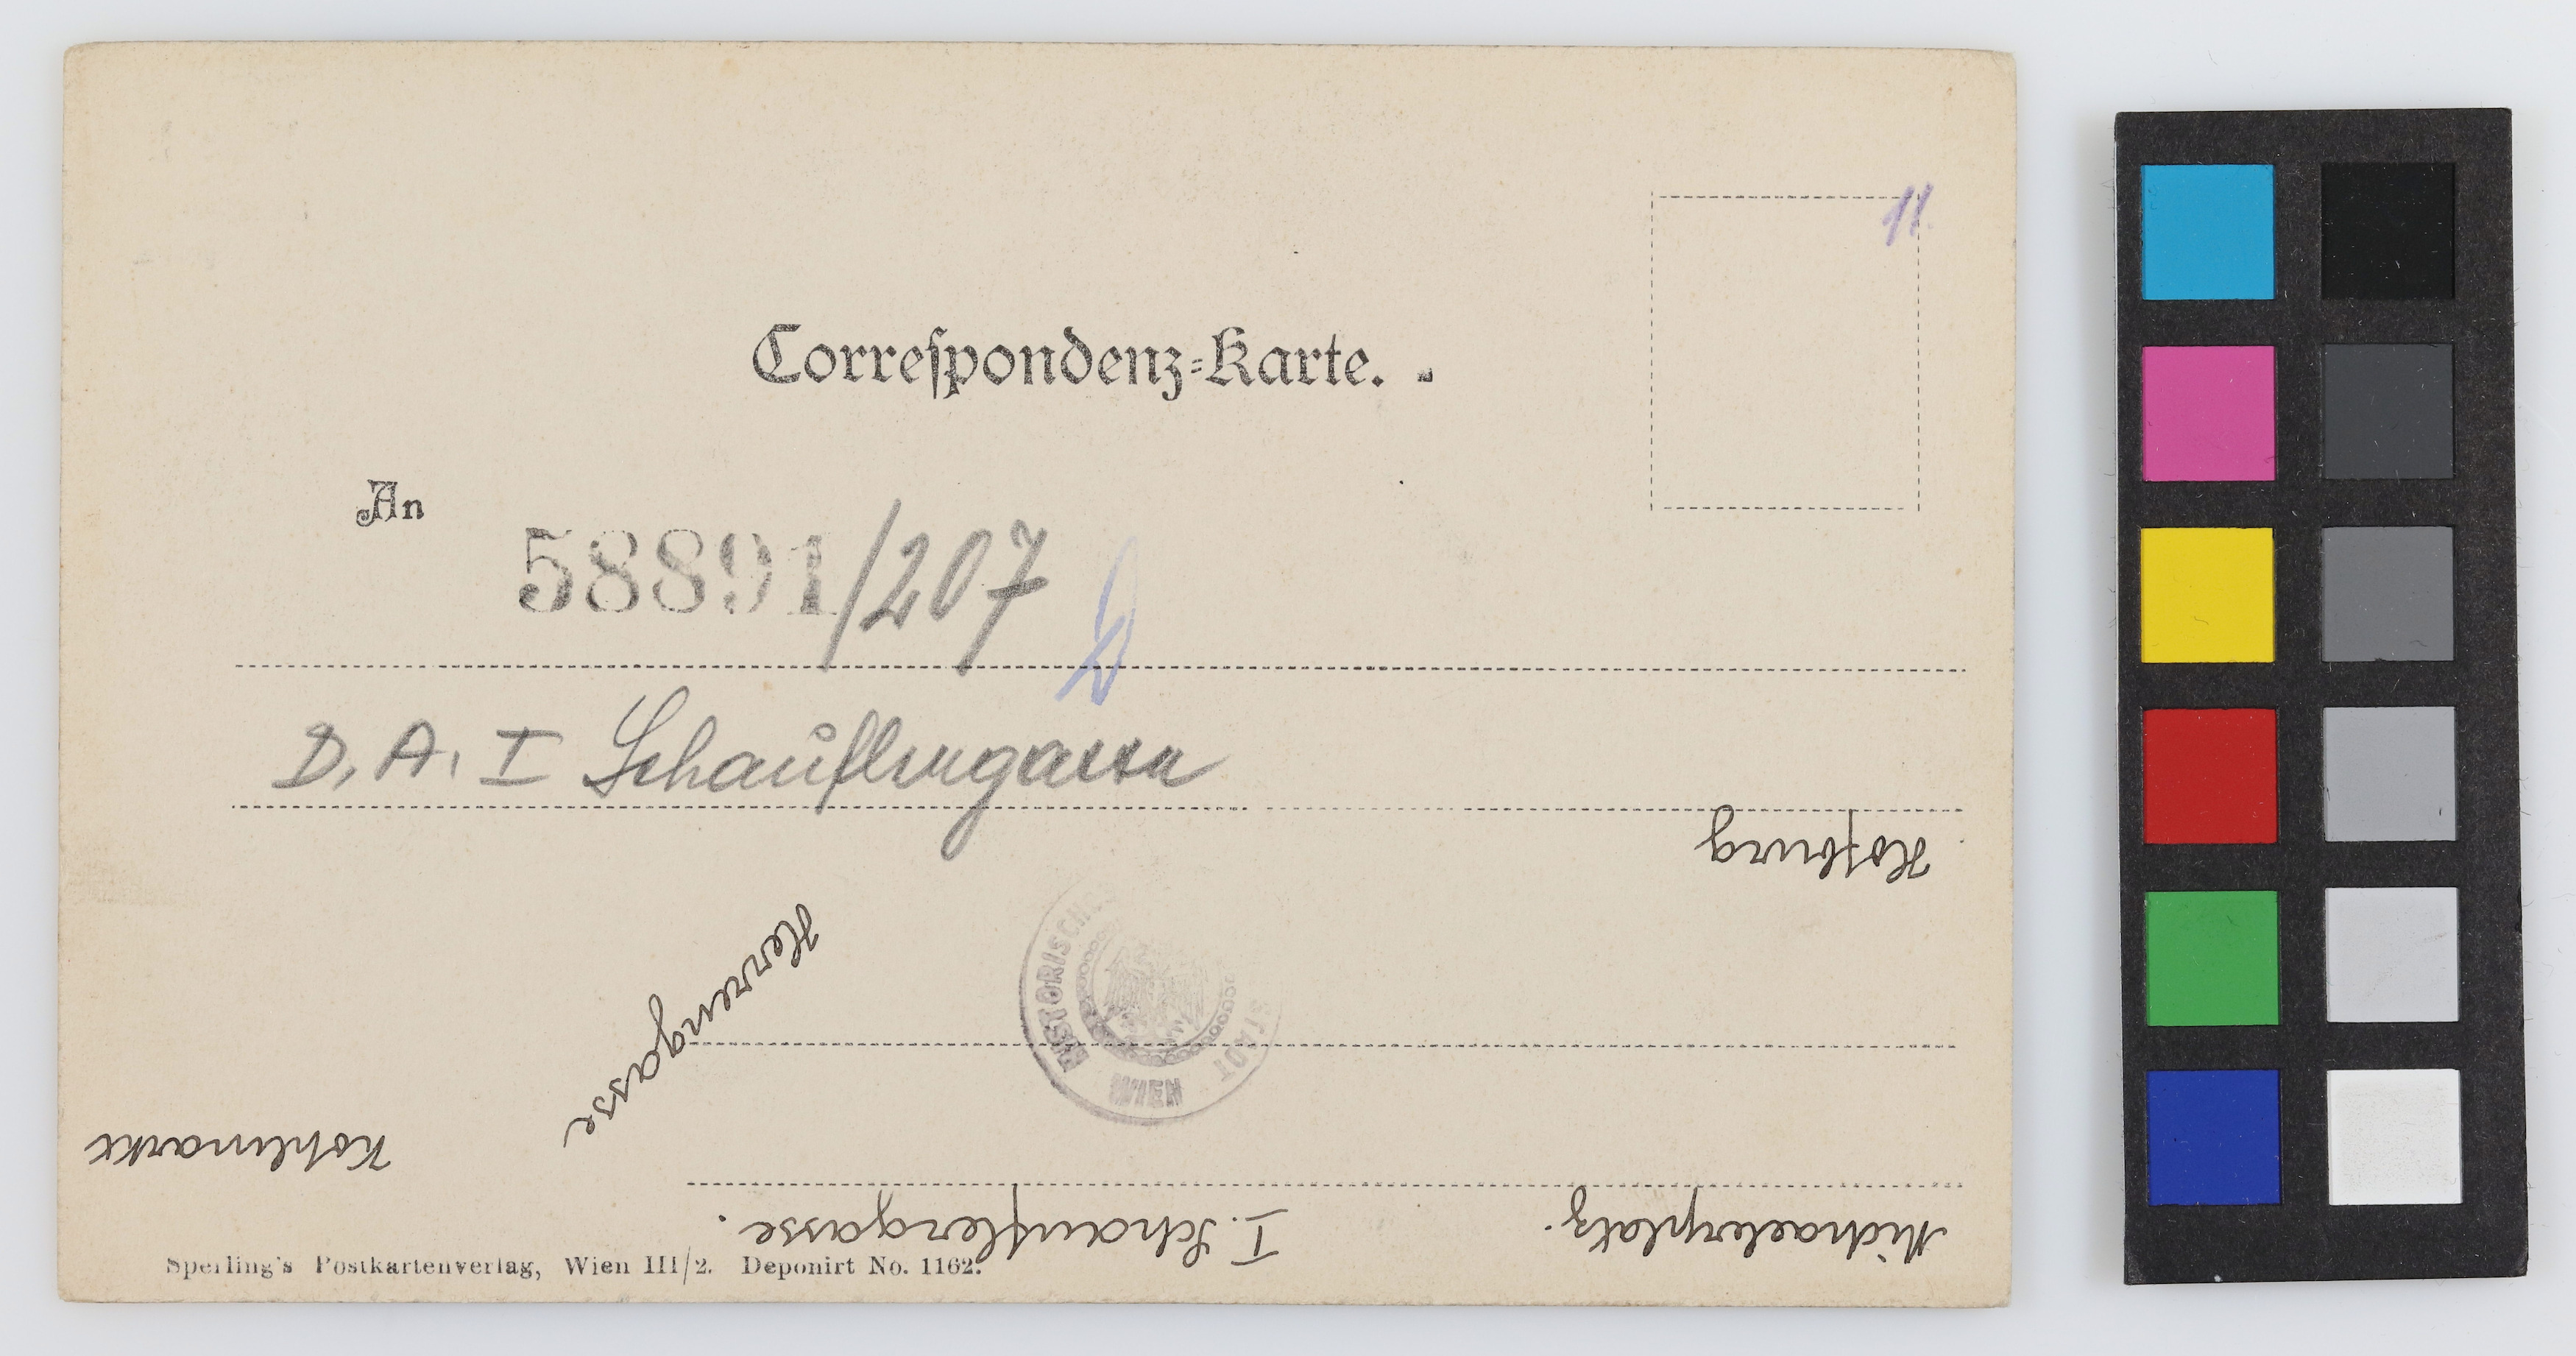 11
Correspondenz-Karte.
An
58891/207
D. A. I Schauflergasse
Hofburg
Herrengasse
HISTORISCHE STADT WIEN
Kohlmarkt
I. Schauflergasse.
Michaelerplatz.
Sperling's Postkartenverlag, Wien III/2. Deponirt No. 1162.